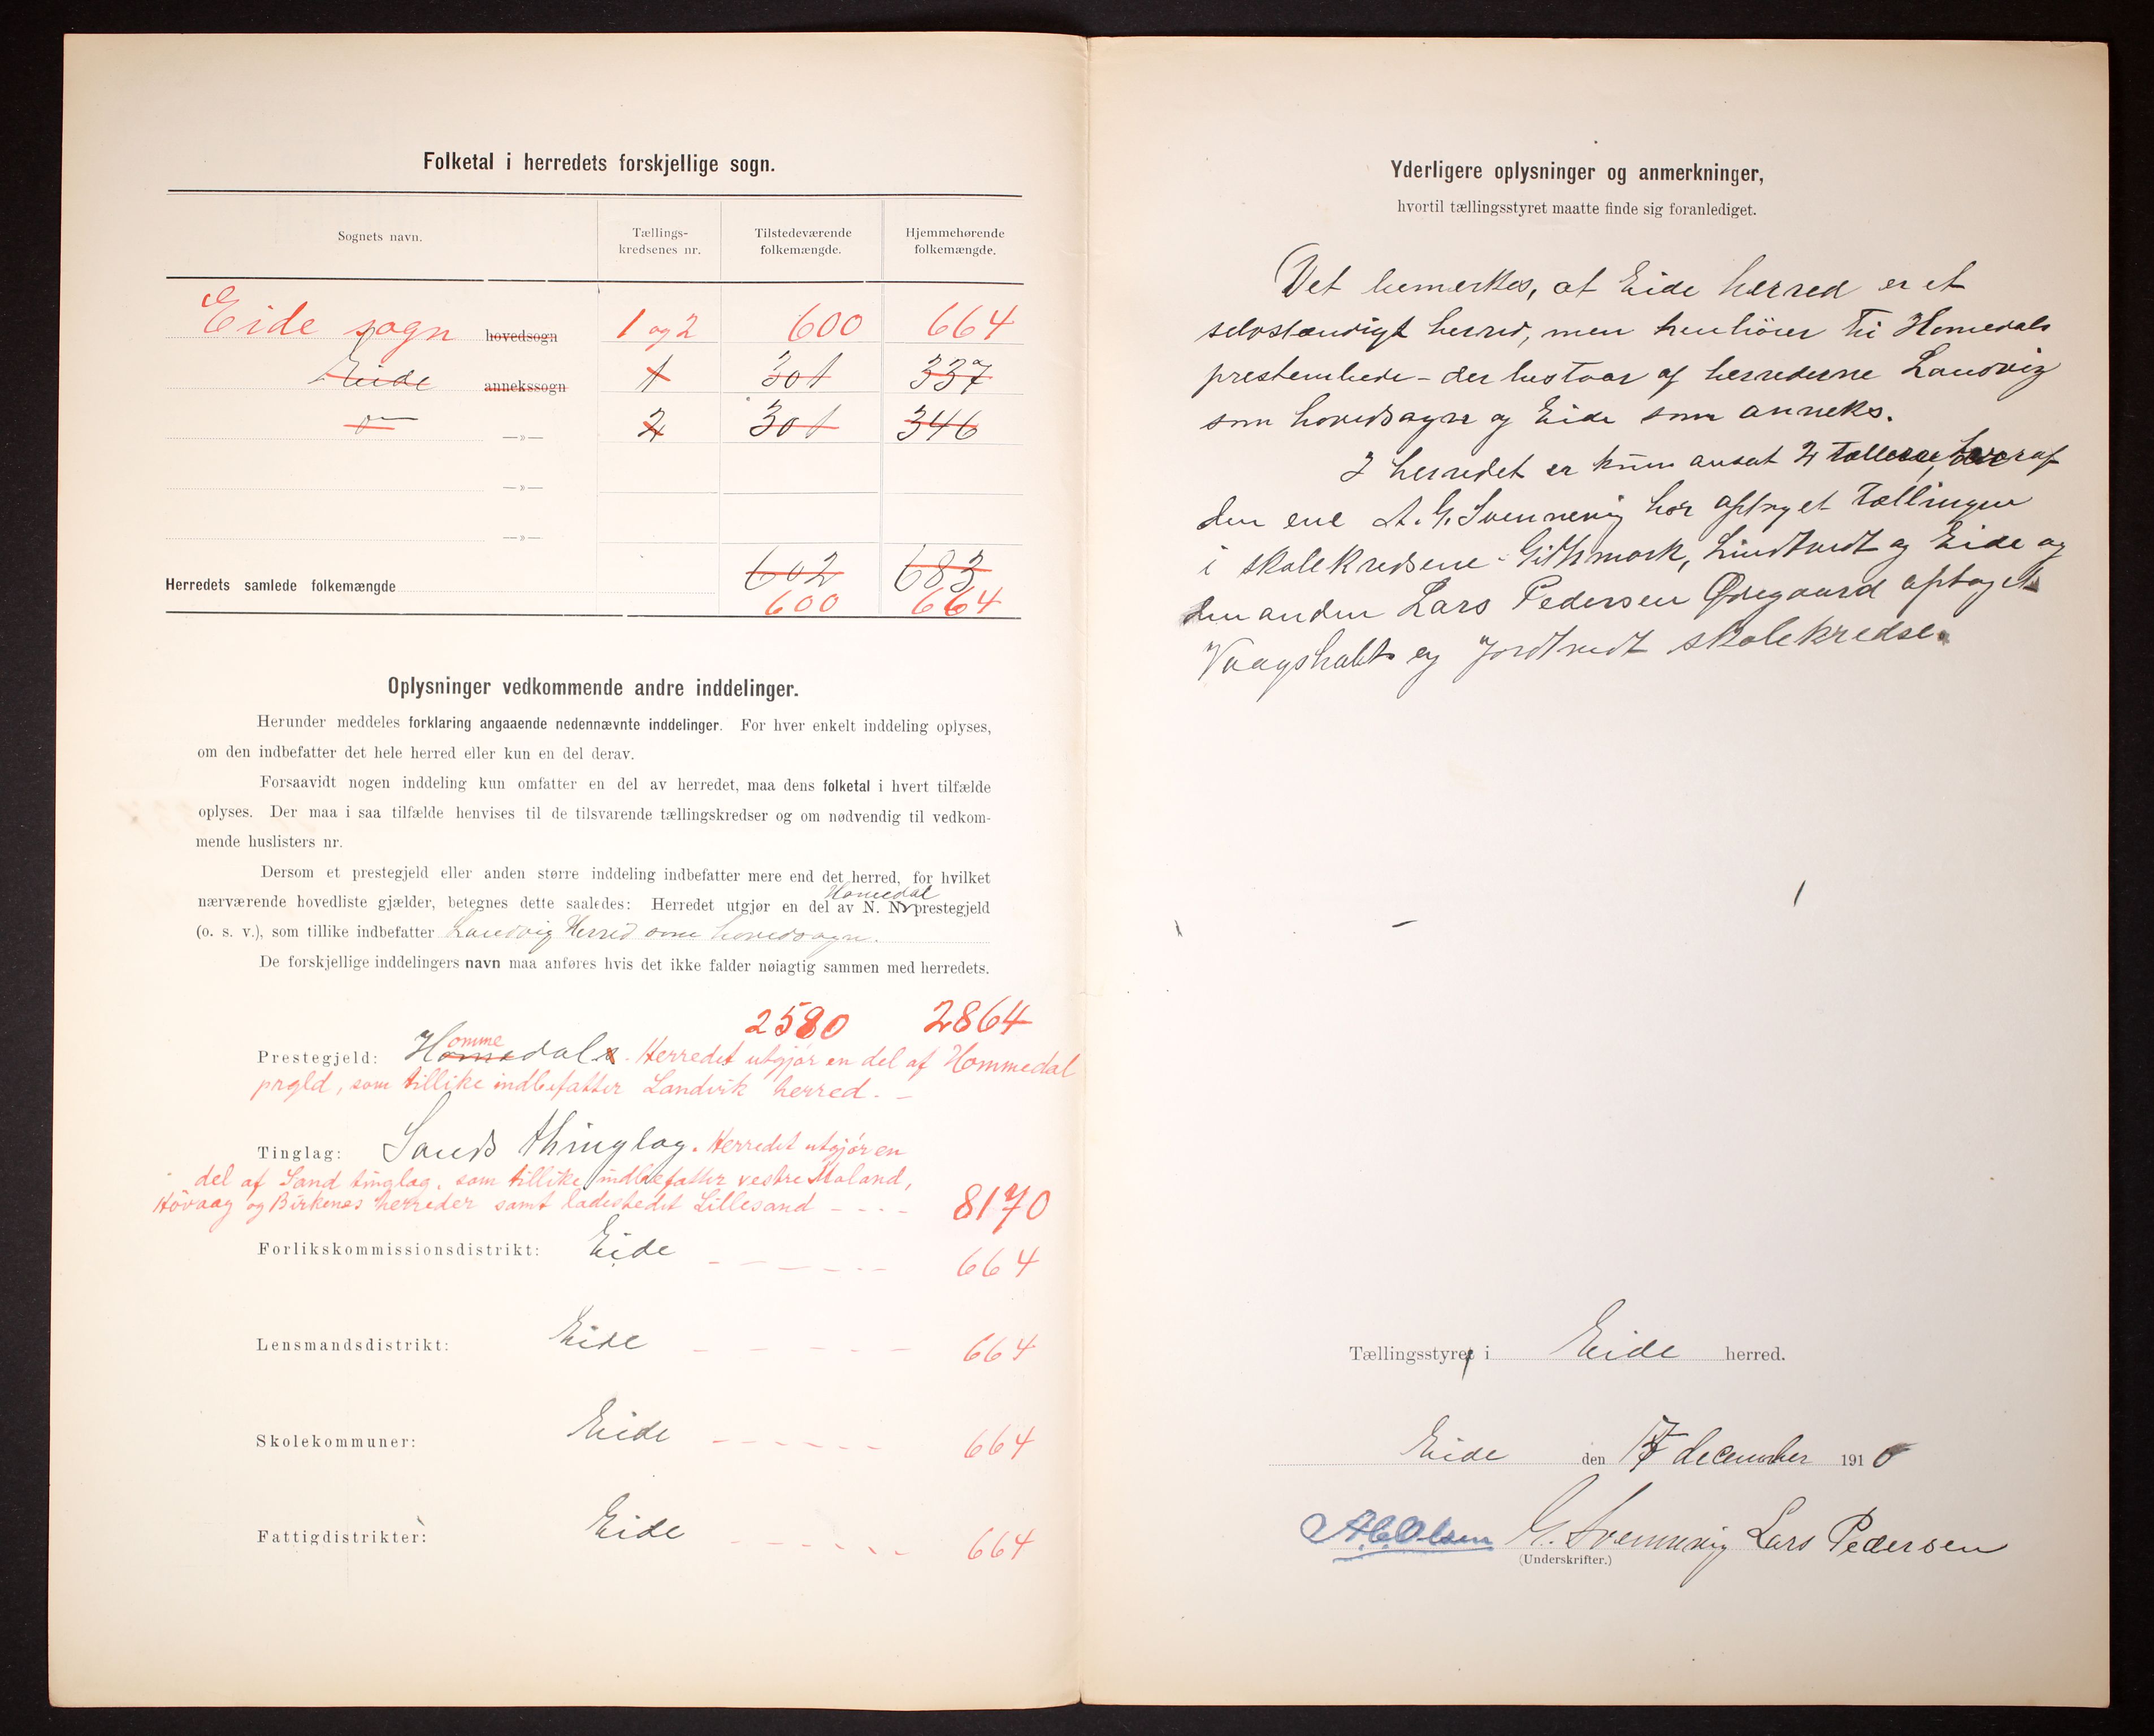 Folketal i herredets forskjellige sogn.
Sognets navn.
Tællings-
kredsenes nr.
Tilstedeværende
folkemængde.
Hjemmehørende
folkemængde.
Eide sogn hovedsogn 1 og 2 600 664
Eide annekssogn 1 301 337
—»— 2 301 346
—»—
—»—
602 683
Herredets samlede folkemængde
600 664
Oplysninger vedkommende andre inddelinger.
Herunder meddeles forklaring angaaende nedennævnte inddelinger. For hver enkelt inddeling oplyses,
om den indbefatter det hele herred eller kun en del derav.
Forsaavidt nogen inddeling kun omfatter en del av herredet, maa dens folketal i hvert tilfælde
oplyses. Der maa i saa tilfælde henvises til de tilsvarende tællingskredser og om nødvendig til vedkom-
mende huslisters nr.
Dersom et prestegjeld eller anden større inddeling indbefatter mere end det herred, for hvilket
Homedal
nærværende hovedliste gjælder, betegnes dette saaledes: Herredet utgjør en del av N. N. prestegjeld
(o. s. v.), som tillike indbefatter Landvig Herred som hovedsogn.
De forskjellige inddelingers navn maa anføres hvis det ikke falder nøiagtig sammen med herredets.
2580 2864
omme
Prestegjeld: Homedals. Herredet utgjør en del af Hommedal
prgld, som tillike indbefatter Landvik herred. –
Tinglag: Sands thinglag. Herredet utgjør en
del af Sand tinglag, som tillike indbefatter vestre Moland,
Høvaag og Birkenes herreder samt ladestedet Lillesand – – – – 8170
Forlikskommissionsdistrikt: Eide 664
Lensmandsdistrikt: Eide 664
Skolekommuner: Eide 664
Fattigdistrikter: Eide 664
Yderligere oplysninger og anmerkninger,
hvortil tællingsstyret maatte finde sig foranlediget.
Det bemerkes, at Eide herred er et
selvstændigt herred, men henhører til Homedals
prestembede – der bestaar af herrederne Landvig
som hovedsogn og Eide som anneks.
I herredet er kun ansat 2 tællere, hvoraf
den ene A. G. Svennevig har optaget tællingen
i skolekredsene Githmark, Lindtvedt og Eide og
den anden Lars Pedersen Ødegaard optaget
Vaagsholt og Jordtvedt skolekredse.
Tællingsstyret i Eide herred.
Eide den 17 december 1910
A. C. Olsen G. Svennevig Lars Pedersen
(Underskrifter.)